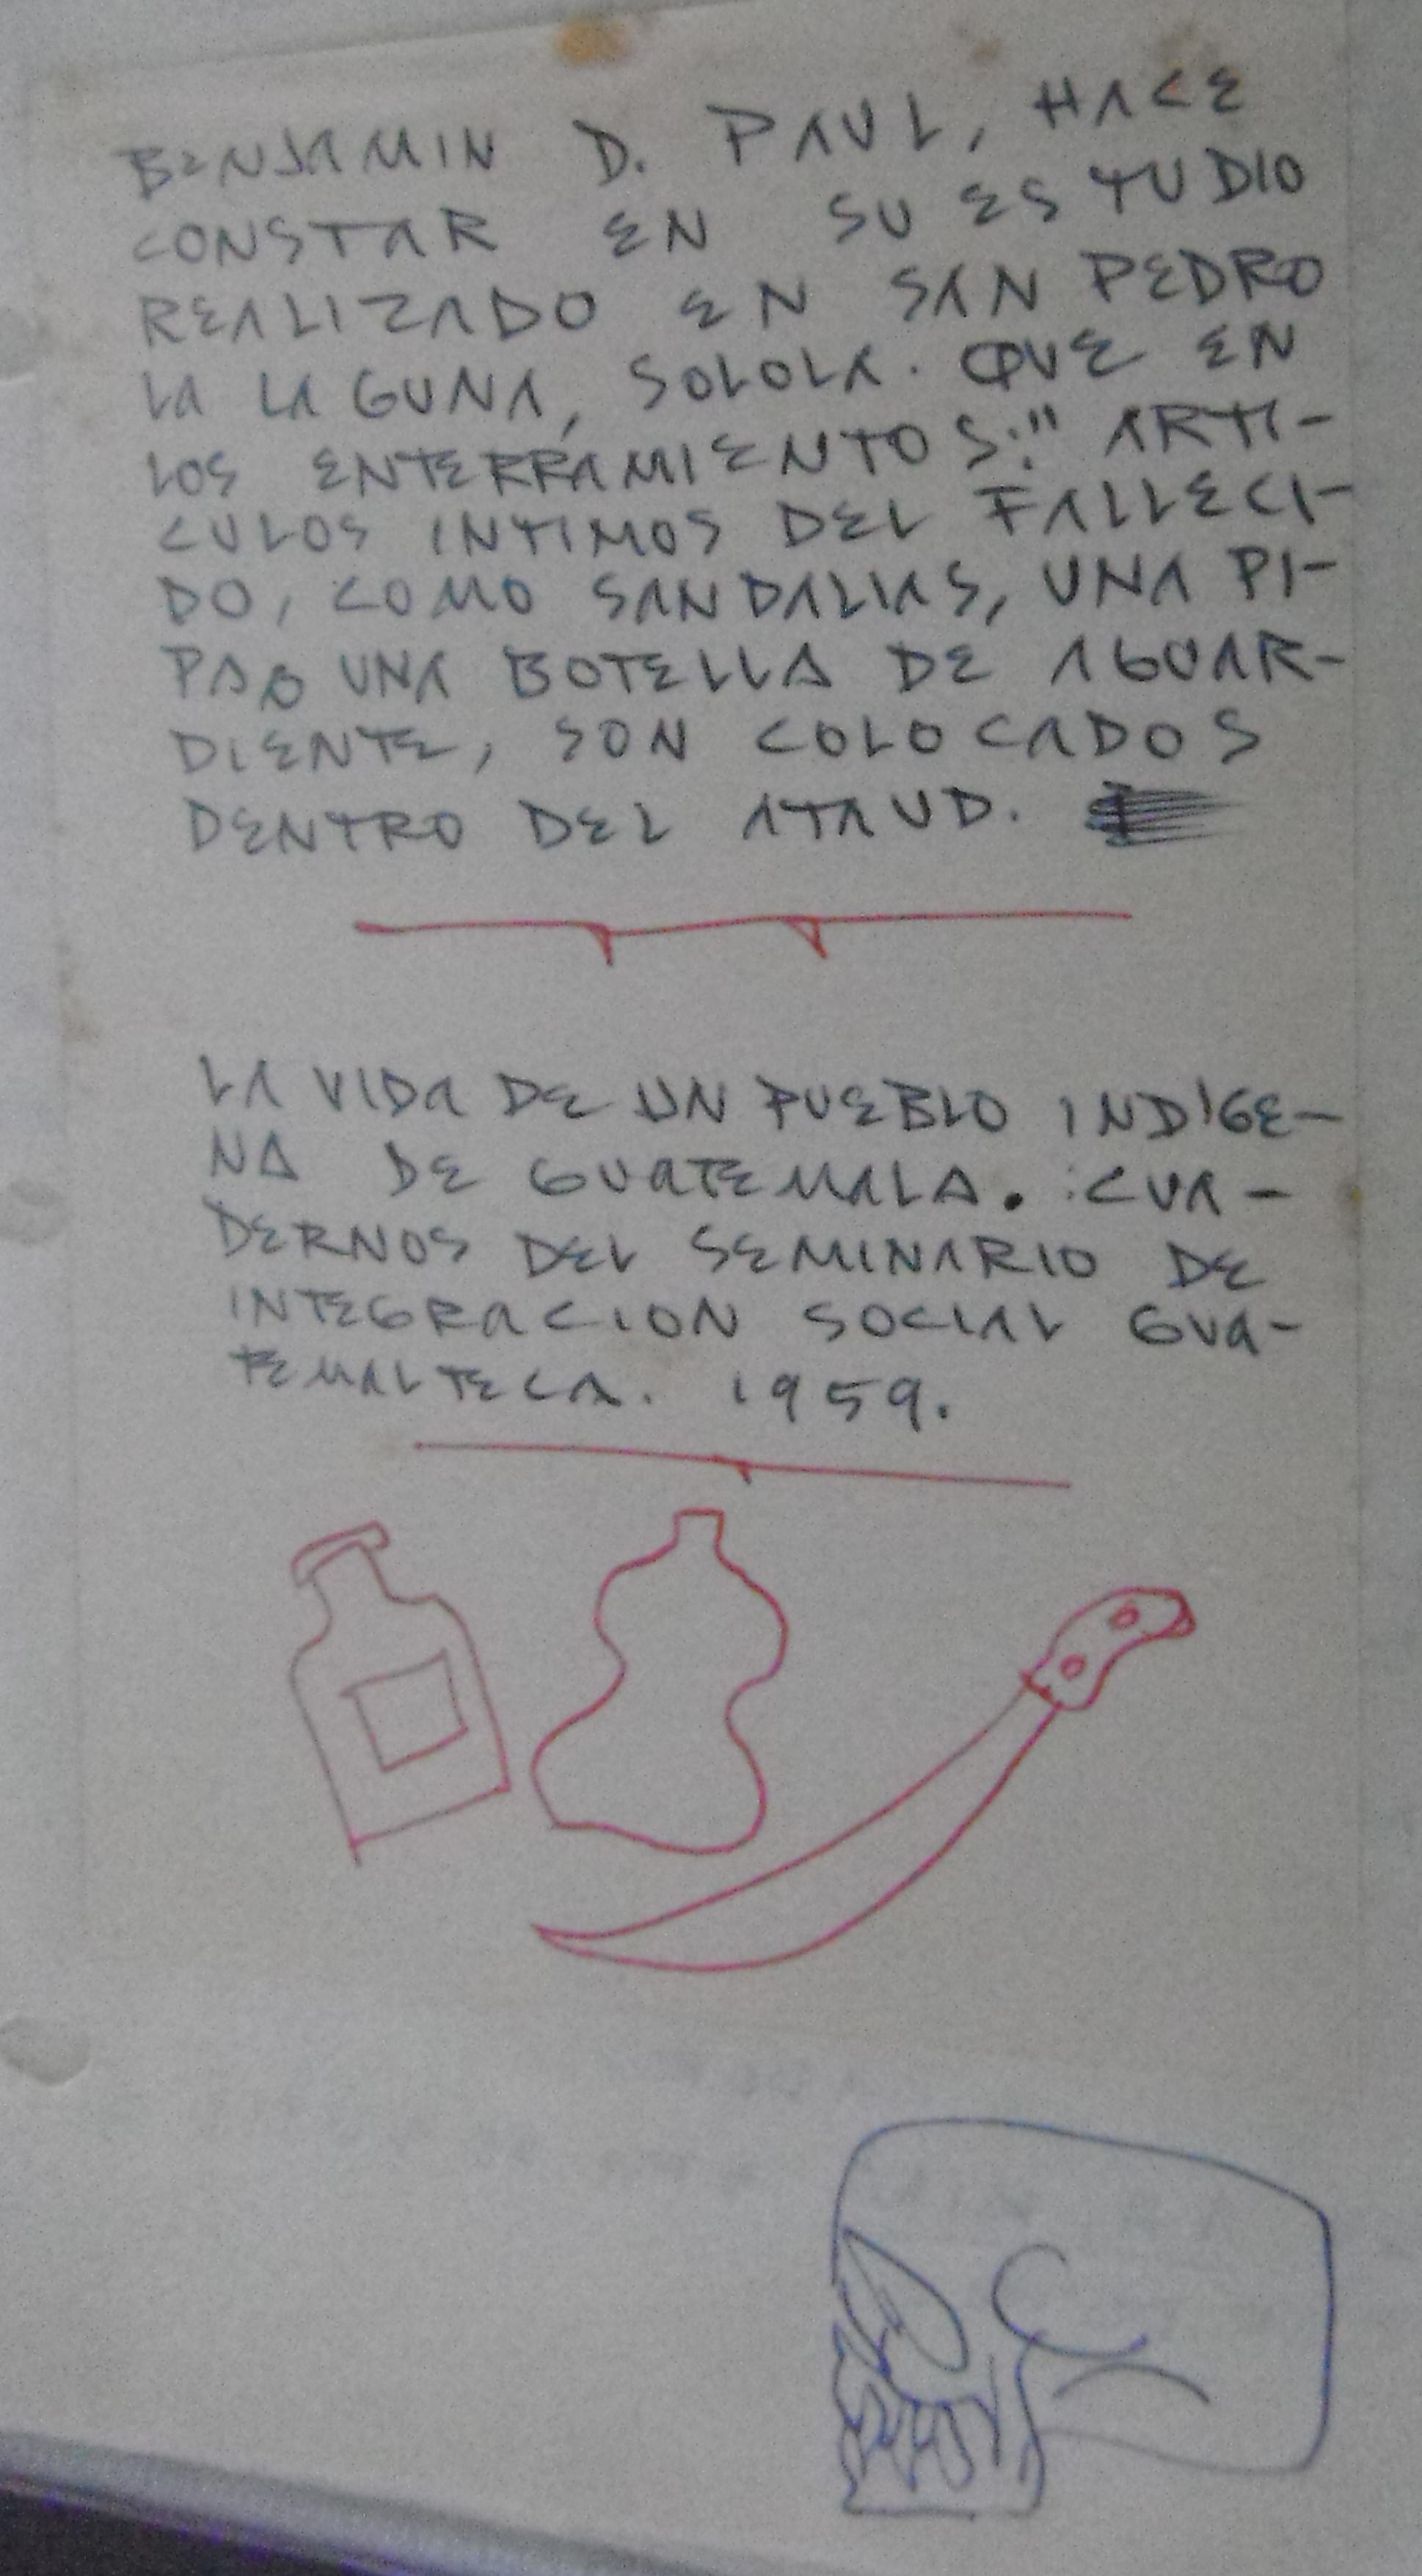 BENJAMIN D. PAUL, HACE
CONSTAR EN SU ESTUDIO
REALIZADO EN SAN PEDRO
LA LAGUNA, SOLOLA. QUE EN
LOS ENTERRAMIENTOS:" ARTI-
CULOS INTIMOS DEL FALLECI-
DO, COMO SANDALIAS, UNA PI-
PA O UNA BOTELLA DE AGUAR-
DIENTE, SON COLOCADOS
DENTRO DEL ATAUD.
LA VIDA DE UN PUEBLO INDIGE-
NA DE GUATEMALA. CUA-
DERNOS DEL SEMINARIO DE
INTEGRACION SOCIAL GUA-
TEMALTECA. 1959.